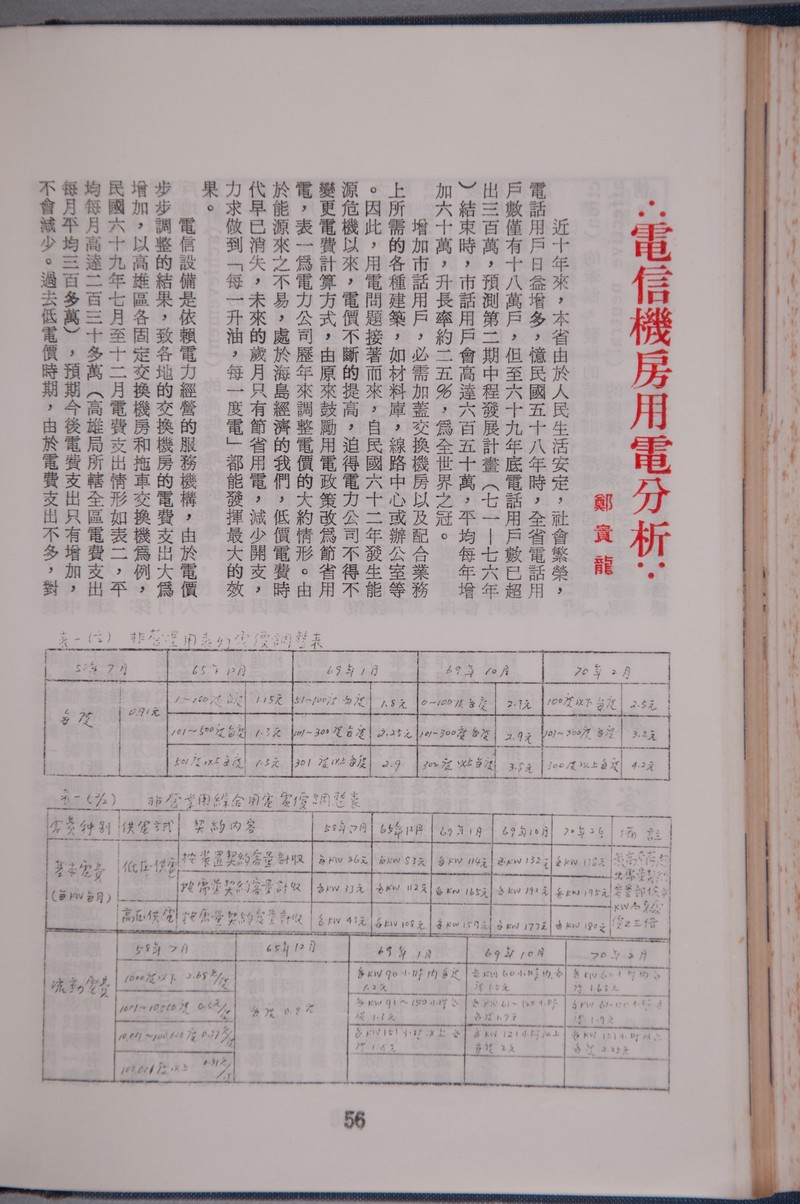 ∴電信機房用電分析∵
鄭貴龍
近十年來，本省由於人民生活安定，社會繁榮，
電話用戶日益增多，憶民國五十八年時，全省電話用
戶數僅有十八萬戶，但至六十九年底電話用戶數已超
出三百萬，預測第二期中程發展計畫（七一－七六年
）結束時，市話用戶會高達六百五十萬，平均每年增
加六十萬，升長率約二五％，爲全世界之冠。
增加市話用戶，必需加蓋交換機房以及配合業務
上所需的各種建築，如材料庫，線路中心或辦公室等
。因此，用電問題接著而來，自民國六十二年發生能
源危機以來，電價不斷的提高，迫得電力公司不得不
變更電費計算方式，由原來鼓勵用電政策改爲節省用
電，表一爲電力公司歷年來調整電價的大約情形。由
於能源來之不易，處於海島經濟的我們，低價電費時
代早已消失，未來的歲月只有節省用電，減少開支，
力求做到「每一升油，每一度電」都能發揮最大的效
果。
電信設備是依賴電力經營的服務機構，由於電價
步步調整的結果，致各地的交換機房的電費支出大爲
增加，以高雄區各固定交換機房和拖車交換機爲例，
民國六十九年七月至十二月電費支出情形如表二，平
均每月高達二百三十多萬（高雄局所轄全區電費支出
每月平均三百多萬），預期今後電費支出只有增加，
不會減少。過去低電價時期，由於電費支出不多，對
表一(1) 非營業用表灯電價調整表
58年7月 65年12月 69年1月 69年10月 70年2月
每度 0.91元 1～100度每度 1.15元 51~100度每度 1.8元 0~100度每度 2.3元 100度以下每度 2.5元
101~500度每度 1.3元 101~300度每度 2.25元 101~300度每度 2.9元 101~300度每度 3.2元
501度以上每度 1.5元 301度以上每度 2.9 300度以上每度 3.5元 300度以上每度 4.2元
表一(2) 非營業用綜合用電電價調整表
電費種別 供電方式 契約內容 58年7月 65年12月 69年1月 69年10月 70年2月 備註
基本電費 (每KW每月) 低压供電 按裝置契約容量計收 每KW 36元 每KW 83元 每KW 114元 每KW 132元
按需量契約容量計收 每KW 112元 每KW 165元 每KW 195元
高压供電 按需量契約容量計收 每KW 43元 每KW 108元 每KW 177元 每KW 190元
58年7月 65年12月 69年1月 69年10月 70年2月
流動電費 1000度以下 每度 0.8元 每KW 90小時內每度 1.2元
56